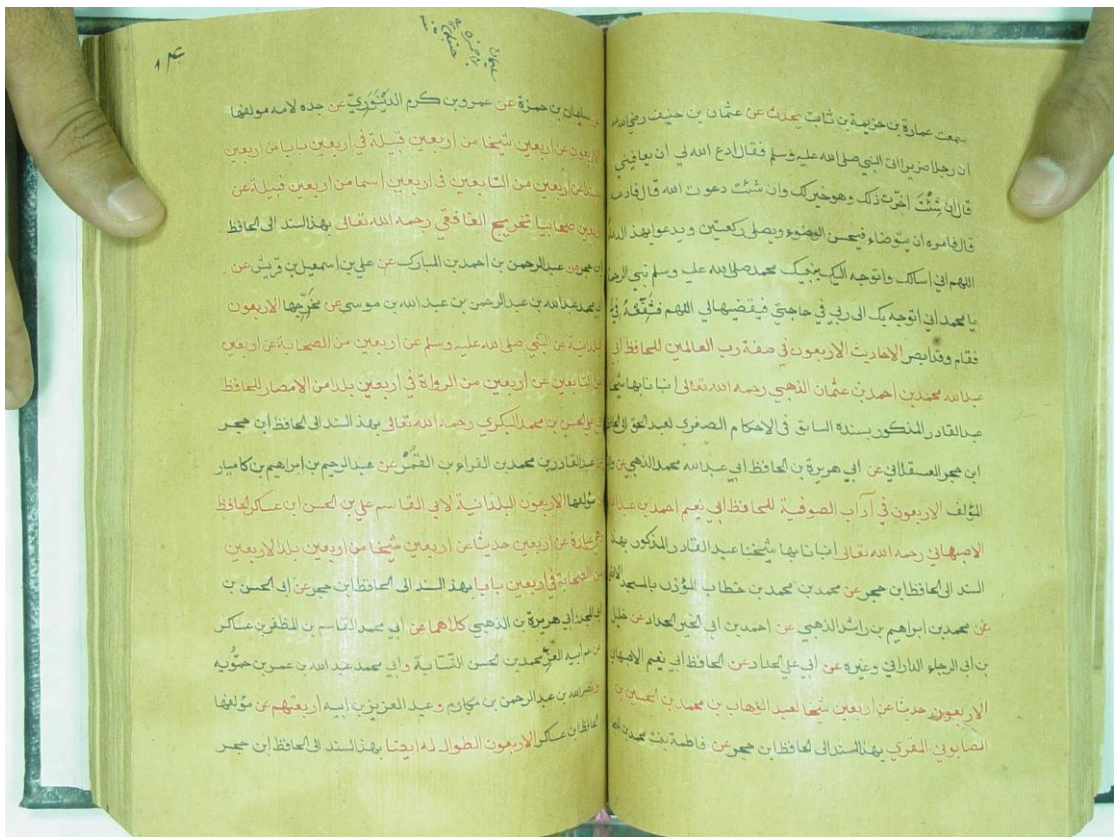 سمعت عمارة بن خزيمة بن ثابت يحدث عن عثمان بن حنيف رضي الله
ان رجلا ضريرا اتى النبي صلى الله عليه وسلم فقال ادع الله لي ان يعافيني
قال ان شئتَ اخرت ذلك وهو خير لك وان شئت دعوت الله قال فادعه
قال فامره ان يتوضاء فيحسن الوضوء ويصلي ركعتين ويدعو بهذ الدعا
اللهم اني اسالك واتوجه اليك بنبيك محمد صلى الله عليه وسلم نبي الرحمة
يا محمد اني اتوجه بك الى ربي في حاجتي فيقضيها لي اللهم فشفعه في
فقام وقد ابصر الاحاديث الاربعون في صفة رب العالمين للحافظ ابي
عبدالله محمد بن احمد بن عثمان الذهبي رحمه الله تعالى انبانا بها شيخنا
عبدالقادر المذكور بسنده السابق في الاحكام الصغرى لعبد الحق الى الحافظ
ابن حجر العسقلاني عن ابي هريرة بن الحافظ ابي عبدالله محمد الذهبي عن
المؤلف الاربعون في آداب الصوفية للحافظ ابي نعيم احمد بن عبدالله
الاصبهاني رحمه الله تعالى انبانا بها شيخنا عبدالقادر المذكور بهذ
السند الى الحافظ ابن حجر عن محمد بن محمد بن خطاب المؤذن بالمسجد
عن محمد بن ابراهيم بن راشد الذهبي عن احمد بن ابي الخير الحداد عن خليل
بن ابي الرجاء الداراني وغيره عن ابي علي الحداد عن الحافظ ابي نعيم الاصبهاني
الاربعون حديثا عن اربعين شيخا لعبد الوهاب بن محمد بن الحسين بن
الصابوني المقري بهذ السند الى الحافظ ابن حجر عن فاطمة بنت محمد بن
١٤
سليمان
بن حمزة
سليمان بن حمزة عن عمرو بن كرم الدينوري عن جده لامه مولفها
الاربعون عن اربعين شيخا من اربعين قبيلة في اربعين بابا من اربعين
مسندا عن اربعين من التابعين في اربعين اسما من اربعين قبيلة عن
اربعين صحابيا تخريج الغافقي رحمه الله تعالى بهذ السند الى الحافظ
ابن حجر عن عبدالرحمن بن احمد بن المبارك عن علي بن اسمعيل بن قريش عن
ابي محمد عبدالله بن عبدالرحمن بن عبدالله بن موسى عن مخرجها الاربعون
البلدانية عن النبي صلى الله عليه وسلم عن اربعين من الصحابة عن اربعين
من التابعين عن اربعين من الرواة في اربعين بلدا من الامصار للحافظ
ابي علي الحسن بن محمد البكري رحمه الله تعالى بهذ السند الى الحافظ ابن حجر
عن عبدالقادر بن محمد بن الفراء بن القمر عن عبدالرحيم بن ابراهيم بن كاميار
عن مؤلفها الاربعون البلدانية لابي القاسم علي بن الحسن ابن عساكر الحافظ
وهي عبارة عن اربعين حديثا عن اربعين شيخا من اربعين بلد الاربعين
من الصحابة في اربعين بابا بهذ السند الى الحافظ ابن حجر عن ابي الحسن بن
ابي المجد وابي هريرة بن الذهبي كلاهما عن ابي محمد القاسم بن المظفر بن عساكر
عن عم ابيه العز محمد بن الحسن النسابة وابي محمد عبدالله بن عمر بن حمويه
ونصر الله بن عبدالرحمن بن مكارم وعبد العزيز بن ابيه اربعتهم عن مؤلفها
الحافظ ابن عساكر الاربعون الطوال له ايضا بهذ السند الى الحافظ ابن حجر